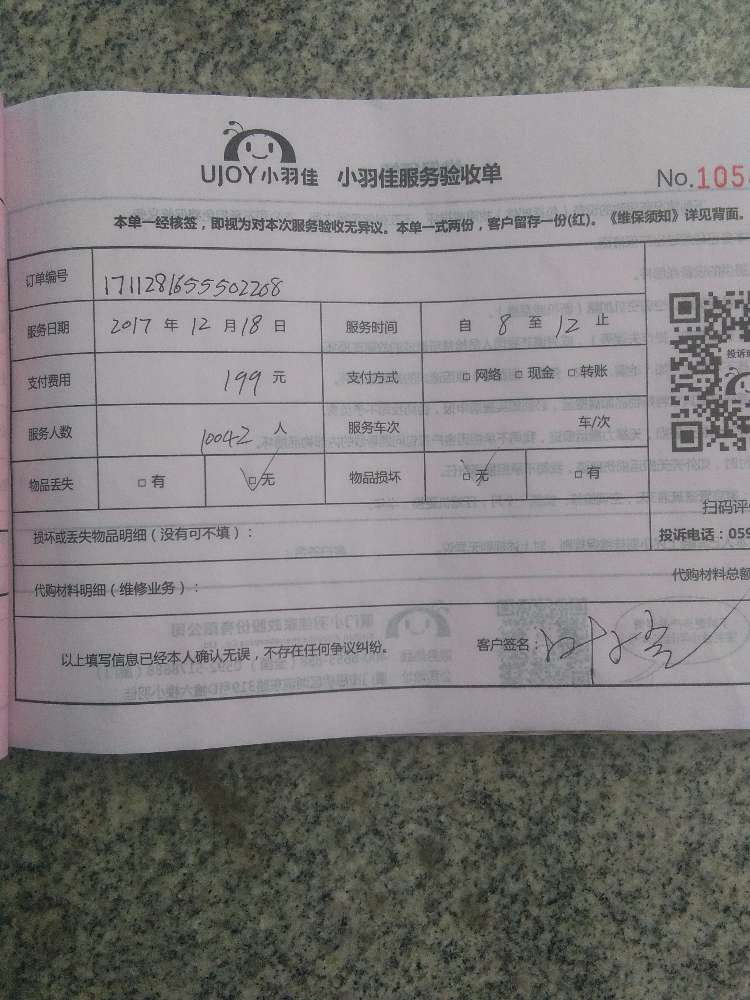 UJOY小羽佳 小羽佳服务验收单 No.105
本单一经核签，即视为对本次服务验收无异议。本单一式两份，客户留存一份(红)。《维保须知》详见背面。
订单编号 1711281655502208
服务日期 2017 年 12 月 18 日 服务时间 自 8 至 12 止
支付费用 199 元 支付方式 □ 网络 □ 现金 □ 转账
服务人数 10042 人 服务车次 车/次
物品丢失 □ 有 □ 无 物品损坏 □ 无 □ 有
投诉
扫码评
损坏或丢失物品明细（没有可不填）： 投诉电话：059
代购材料明细（维修业务）： 代购材料总额
以上填写信息已经本人确认无误，不存在任何争议纠纷。 客户签名：